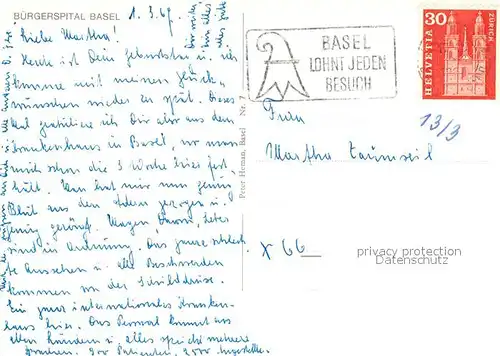 BÜRGERSPITAL BASEL
1. 3. 69.
Liebe Martha!
Heute ist Dein Geburtstag u. ich
komme mit meinen Glück-
wünschen wieder zu spät. Dieses
Mal gratuliere ich Dir aber aus dem
Krankenhaus in Basel, wo man
mich schon die 3 Woche hier fest
hält. Man hat mir nun genug
Blut aus den Adern gezogen u.
genug geröngt. Magen, Leber
sind in Ordnung. Das ganze schlech-
te Aussehen u. alle Beschwerden
kommen von der Schilddrüse.
Ein ganz internationales Kranken-
haus hier. Das Personal kommt aus
allen Ländern u. alles spricht mehrere
Sprachen. 900 Patienten, 2000 Angestellte.
Peter Heman, Basel Nr. 7
BASEL
LOHNT JEDEN
BESUCH
30
HELVETIA
ZÜRICH
13/3
Frau
Martha
X 66
privacy protection
Datenschutz